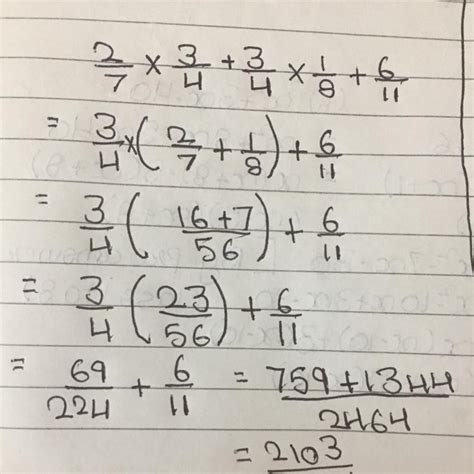 2/7 × 3/4 + 3/4 × 1/8 + 6/11
= 3/4 × ( 2/7 + 1/8 ) + 6/11
= 3/4 ( 16+7/56 ) + 6/11
= 3/4 ( 23/56 ) + 6/11
= 69/224 + 6/11 = 759+1344/2464
= 2103